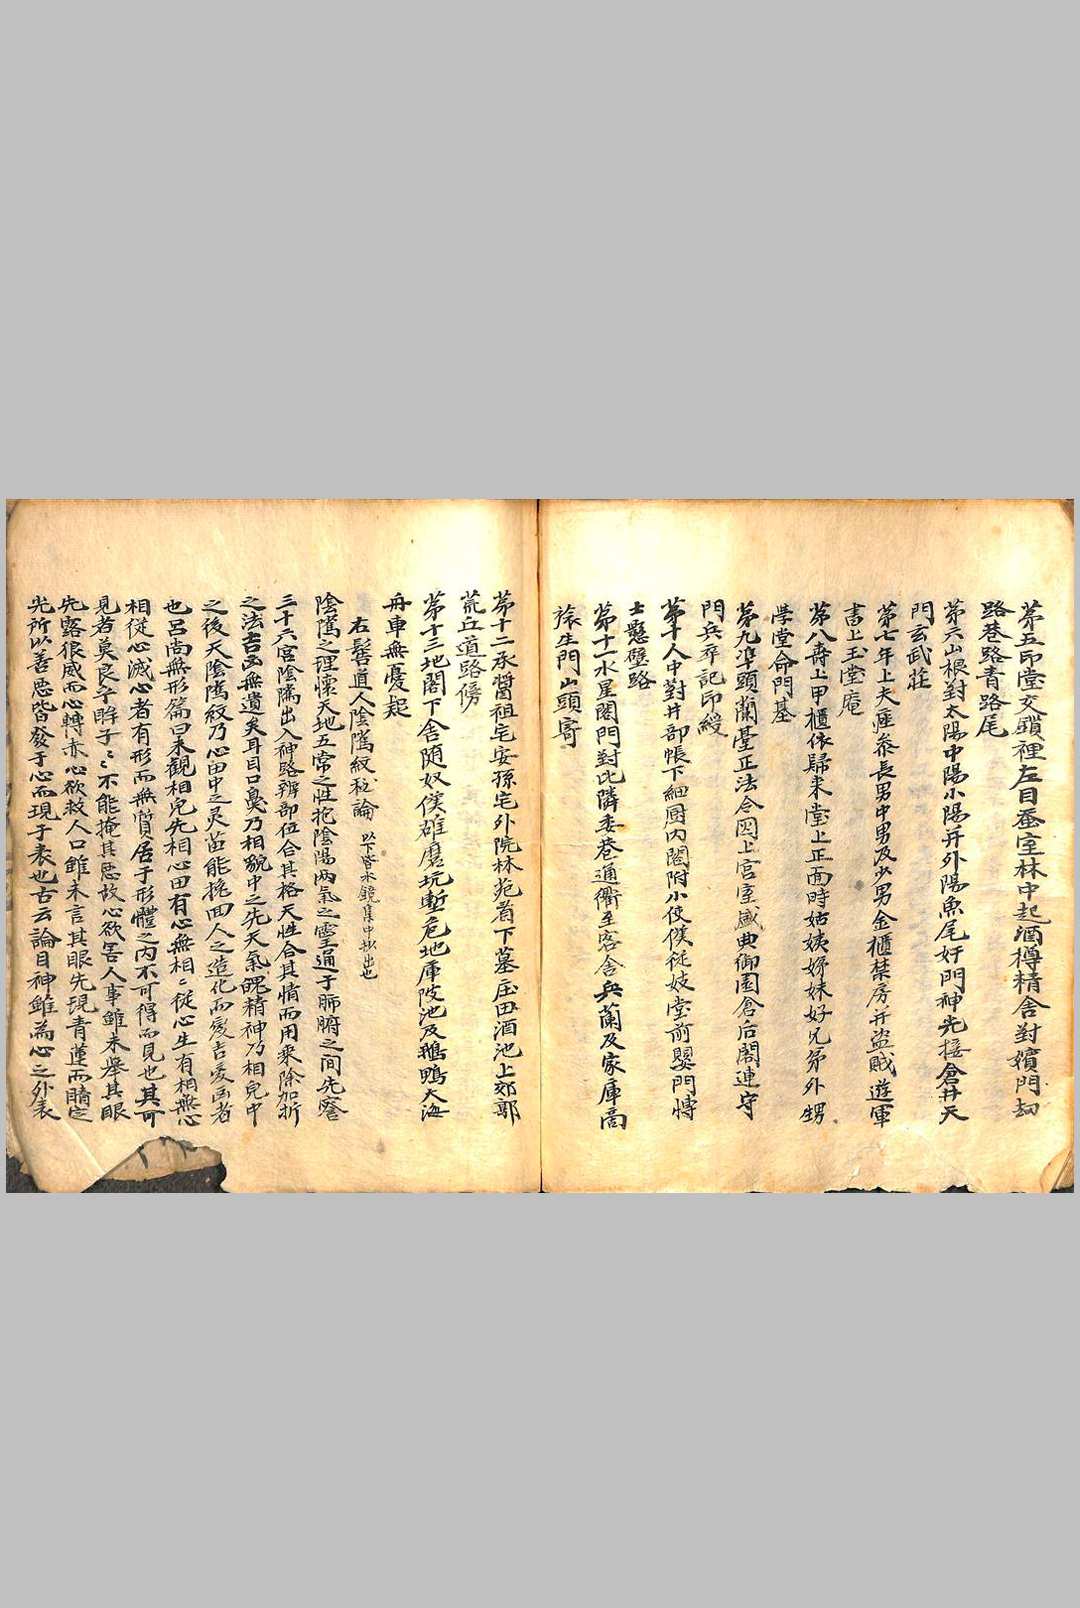 第五印堂交鎖裡左目蚕室林中起酒樽精舍對嬪門刼
路巷路青路尾
第六山根對太陽中陽小陽并外陽魚尾奸門神光接倉井天
門玄武莊
第七年上夫座參長男中男及少男金櫃禁房并盜賊遊軍
書上玉堂庵
第八壽上甲櫃依歸来堂上正面時姑姨姊妹好兄弟外甥
學堂命門基
第九準頭蘭臺正法令図上宮室盛典御園倉后閣連守
門兵卒記印綬
第十人中對井部帳下細厨内閣附小使僕従妓堂前嬰門博
士懸壁路
第十一水星閣門對比隣委巷通衢至客舍兵蘭及家庫商
旅生門山頭寄
第十二承醬祖宅安孫宅外院林苑看下墓庄田酒池上郊郭
荒丘道路傍
第十三地閣下舍随奴僕碓磨坑塹危地庫陂池及鵝鴨大海
舟車無憂起
右髻道人陰隲紋秘論 以下皆水鏡集中抄出也
陰隲之理懷天地五常之性抱陰陽両氣之霊通于肺腑之間先詧
三十六宮陰隲出入神路辨部位合其格天性合其情而用乘除加折
之法吉凶無遺矣耳目口鼻乃相貌中之先天氣魄精神乃相皃中
之後天陰隲紋乃心田中之灵苗能挽回人之造化而變吉變凶者
也呂尚無形篇曰未觀相皃先相心田有心無相〻従心生有相無心
相従心滅心者有形而無質居于形體之内不可得而見也其可
見者莫良乎眸子〻〻不能掩其悪故心欲害人事雖未舉其眼
先露狠威而心轉赤心欲救人口雖未言其眼先現青蓮而睛定
光所以善悪皆發于心而現于表也古云論目神雖為心之外表